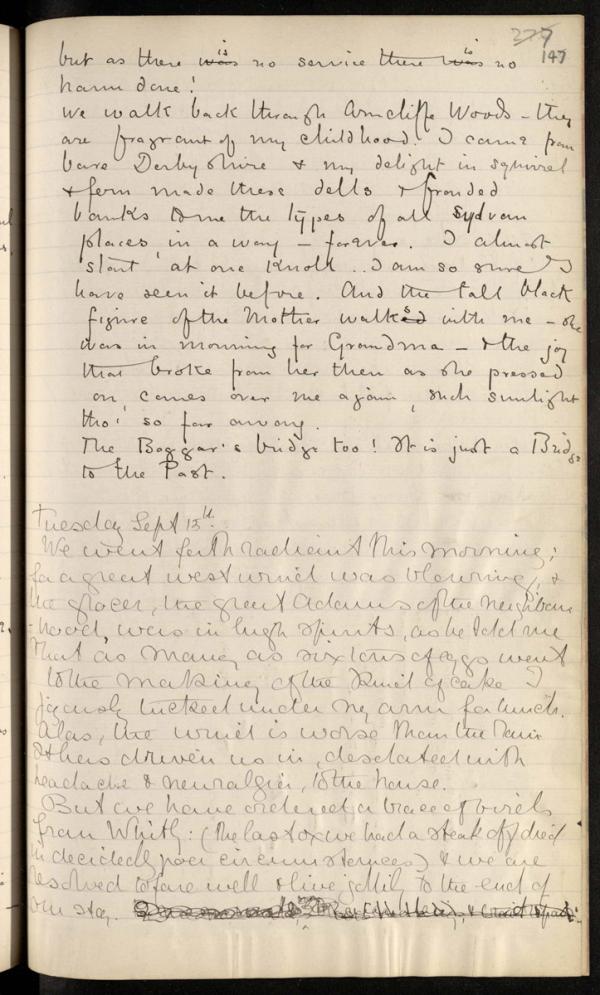 277
147
but as there was is no service there was is no
harm done!
We walk back through Arncliffe Woods - they
are fragrant of my childhood. I came from
bare Derbyshire & my delight in squirrel
& fern made these dells & fronded
banks to me the types of all sylvan
places in a way - forever. I almost
start at one knoll .. I am so sure I
have seen it before. And the tall black
figure of the Mother walked s with me - she
was in mourning for Grandma - & the joy
that broke from her then as she pressed
on comes over me again, such sunlight
tho' so far away.
The Beggar's bridge too! It is just a Bridge
to the Past.
Tuesday Sept 15th.
We went forth radiant this morning;
for a great west wind was blowing, &
the grocer, the great Adams of the neighbour
-hood, was in high spirits, as he told me
that as many as six tons of eggs went
to the making of the kind of cake I
joyously tucked under my arm for lunch.
Alas, the wind is worse than the rain
& has driven us in, desolated with
headache & neuralgia, to the house.
But we have ordered a brace of birds
from Whitby: (the last ox we had a steak off died
in decidedly poor circumstances) & we are
resolved to fare well & live jollily to the end of
our stay.